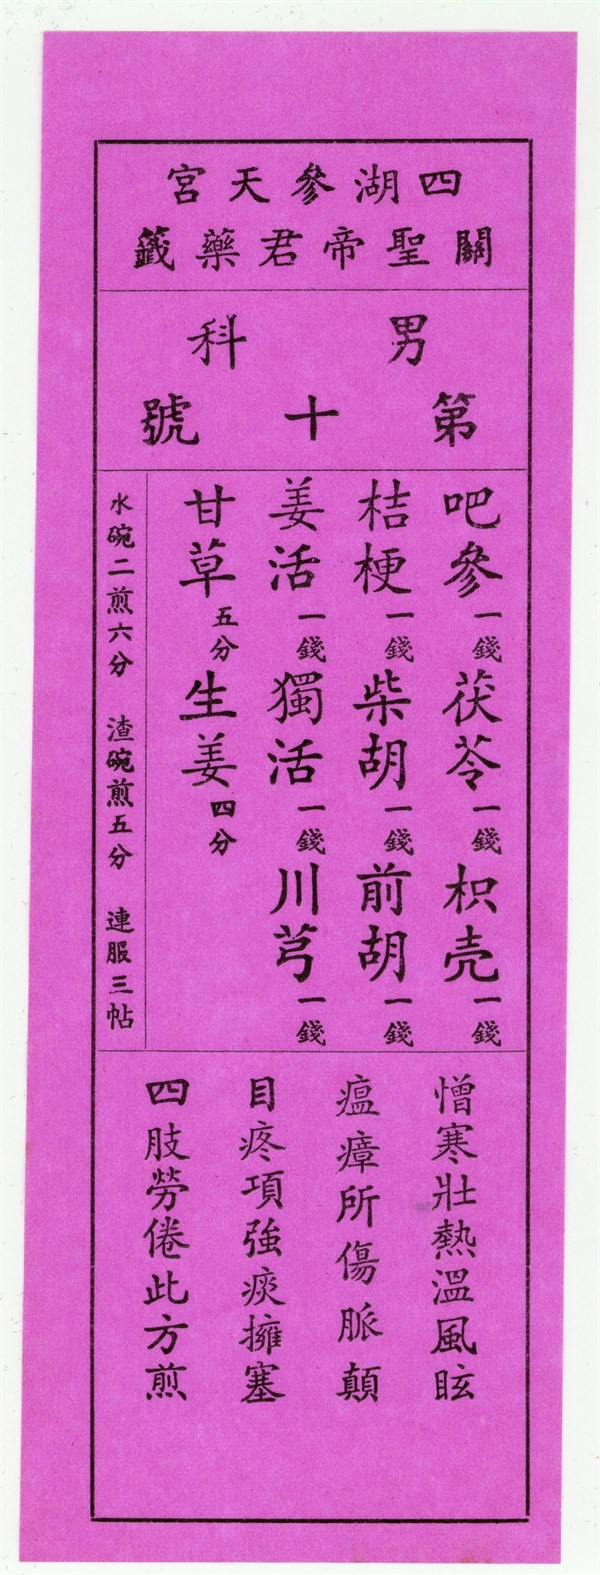 四湖參天宮
關聖帝君藥籤
男科
第十號
吧參一錢茯苓一錢枳壳一錢
桔梗一錢柴胡一錢前胡一錢
姜活一錢獨活一錢川芎一錢
甘草五分生姜四分
水碗二煎六分 渣碗煎五分 連服三帖
憎寒壯熱溫風眩
瘟瘴所傷脈顛
目疼項強痰擁塞
四肢勞倦此方煎